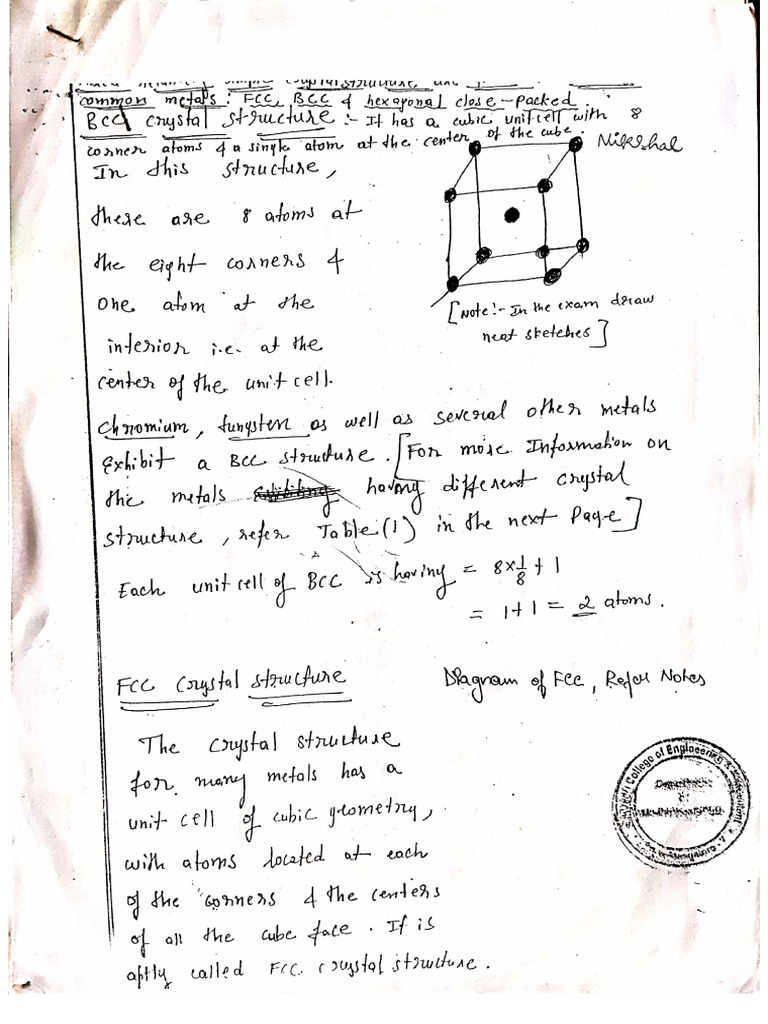 simple crystal structure
common metals: FCC, BCC & hexagonal close-packed.
BCC crystal structure :- It has a cubic unit cell with 8
corner atoms & a single atom at the center of the cube.
Nikshal
In this structure,
there are 8 atoms at
the eight corners &
one atom at the
interior i.e. at the
center of the unit cell.
[Note:- In the exam draw
neat sketches]
Chromium, tungsten as well as several other metals
Exhibit a BCC structure. [For more Information on
the metals having different crystal
structure, refer Table(1) in the next Page]
Each unit cell of BCC is having = 8×1/8 + 1
= 1+1 = 2 atoms.
FCC Crystal structure
Diagram of FCC, Refer Notes
The crystal structure
for many metals has a
unit cell of cubic geometry,
with atoms located at each
of the corners & the centers
of all the cube face. If is
aptly called FCC crystal structure.
College of Engineering &